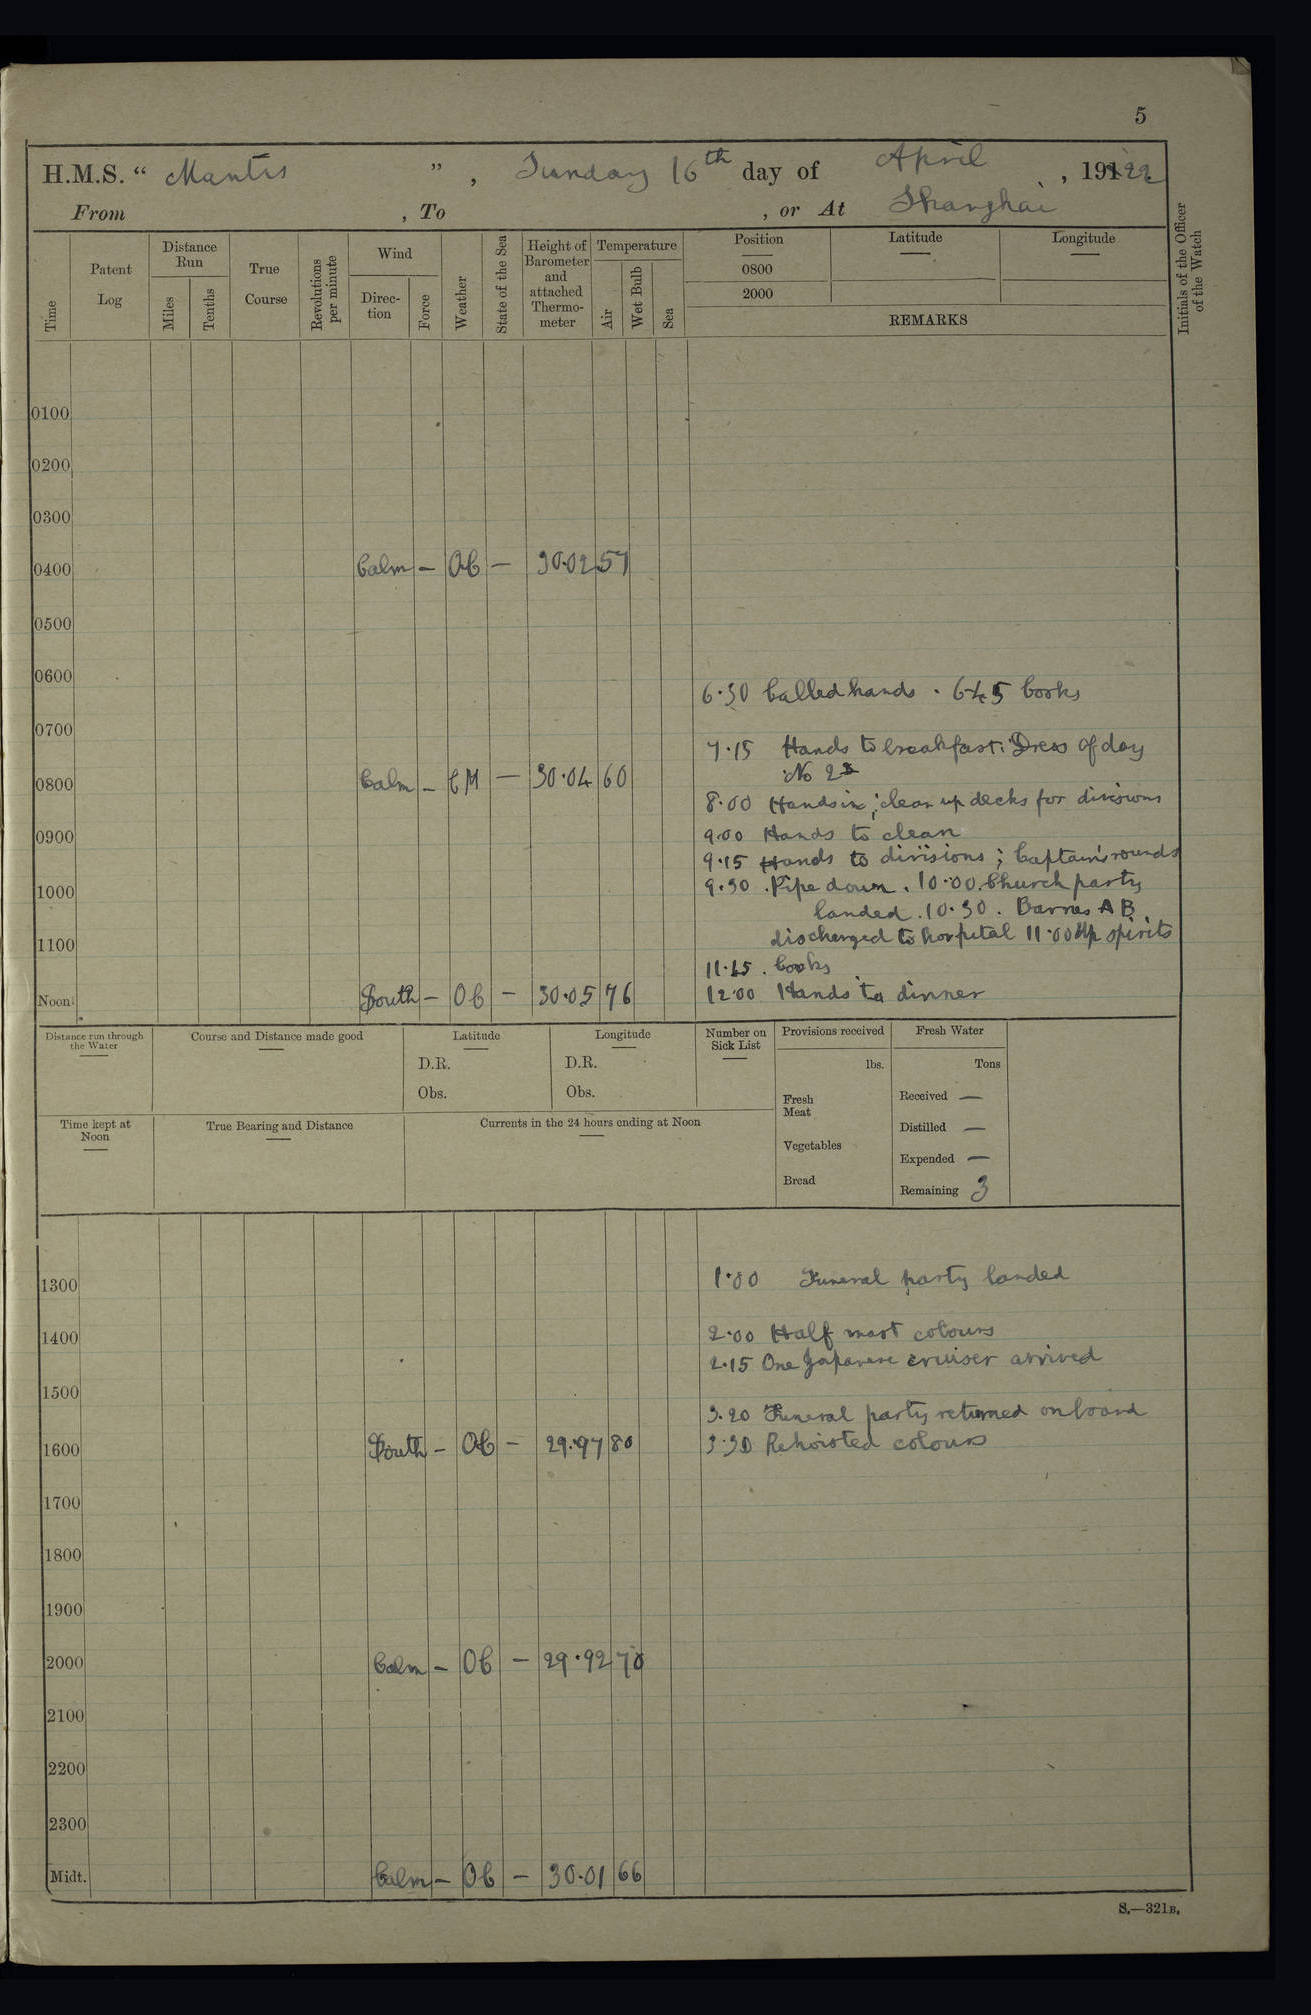 5
H.M.S. “ Mantis ” , Sunday 16th day of April , 191 22
From , To , or At Shanghai
Time
Patent Log
Distance Run
Miles
Tenths
True Course
Revolutions per minute
Wind
Direc-tion
Force
Weather
State of the Sea
Height of Barometer and attached Thermo-meter
Temperature
Air
Wet Bulb
Sea
Position
0800
2000
Latitude
Longitude
REMARKS
Initials of the Officer of the Watch
0100
0200
0300
0400 Calm — OC — 30.02 57
0500
0600
6.30 Called hands . 645 Cooks
0700
7.15 Hands to breakfast: Dress of day
No 2s
0800 Calm — CM — 30.04 60
8.00 Hands in ; clear up decks for divisions
0900
9.00 Hands to clean
9.15 Hands to divisions ; Captain's rounds
1000
9.30 . Pipe down . 10.00. Church party
landed . 10.30 . Barnes AB
1100
discharged to hospital 11.00 Up spirits
11.45 . Cooks
Noon South — OC — 30.05 76
12.00 Hands to dinner
Distance run through the Water
Course and Distance made good
Latitude
D.R.
Obs.
Longitude
D.R.
Obs.
Number on Sick List
Provisions received
lbs.
Fresh Meat
Vegetables
Bread
Fresh Water
Tons
Received —
Distilled —
Expended —
Remaining 3
Time kept at Noon
True Bearing and Distance
Currents in the 24 hours ending at Noon
1300
1.00 Funeral party landed
1400
2.00 Half mast colours
2.15 One Japanese cruiser arrived
1500
3.20 Funeral party returned onboard
1600 South — OC — 29.97 80
3.30 Rehoisted colours
1700
1800
1900
2000 Calm — OC — 29.92 70
2100
2200
2300
Midt. Calm — OC — 30.01 66
S.—321B.